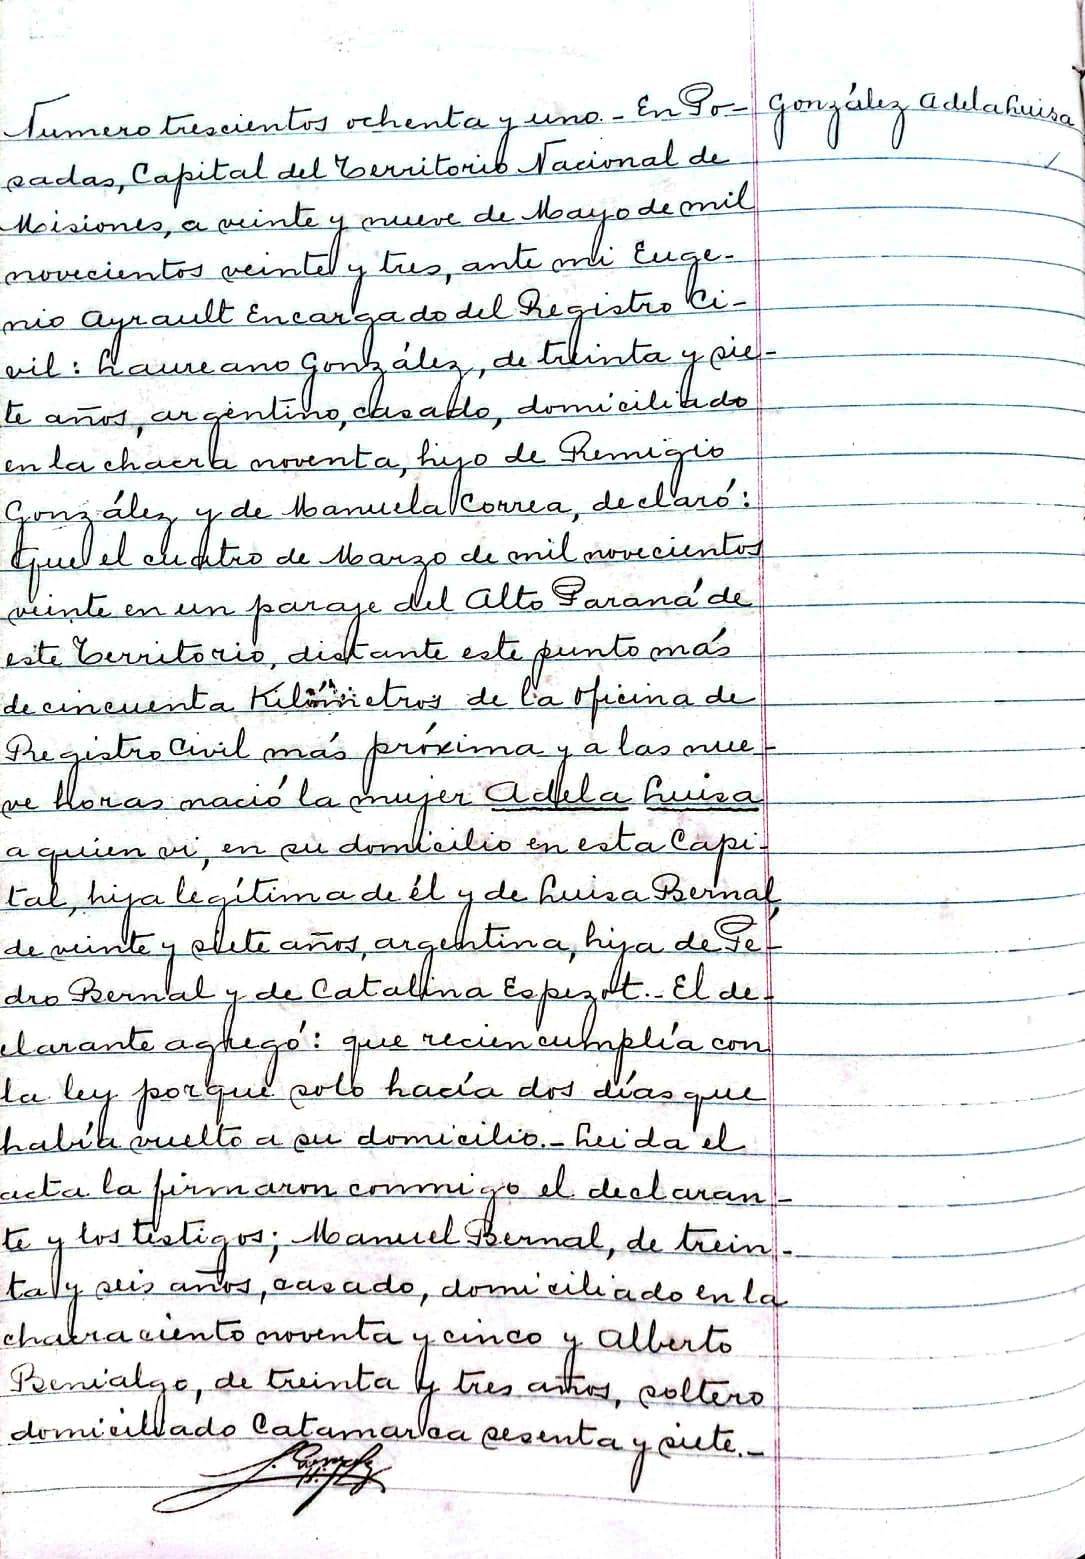 Numero trescientos ochenta y uno.- En Po-
González Adela Luisa
sadas, Capital del Territorio Nacional de
Misiones, a veinte y nueve de Mayo de mil
novecientos veinte y tres, ante mi Euge-
nio Ayrault Encargado del Registro Ci-
vil: Laureano González, de treinta y sie-
te años, argentino, casado, domiciliado
en la chacra noventa, hijo de Remigio
González y de Manuela Correa, declaró:
Que el cuatro de Marzo de mil novecientos
veinte en un paraje del Alto Paraná de
este Territorio, distante este punto más
de cincuenta Kilómetros de la oficina de
Registro Civil más próxima y a las nue-
ve horas nació la mujer Adela Luisa
a quien vi, en su domicilio en esta Capi-
tal, hija legítima de él y de Luisa Bernal,
de veinte y siete años, argentina, hija de Pe-
dro Bernal y de Catalina Espezot.- El de-
clarante agregó: que recien cumplía con
la ley porque solo hacía dos días que
había vuelto a su domicilio.- Leida el
acta la firmaron conmigo el declaran-
te y los testigos; Manuel Bernal, de trein-
ta y seis años, casado, domiciliado en la
chacra ciento noventa y cinco y Alberto
Benialgo, de treinta y tres años, soltero
domiciliado Catamarca sesenta y siete.-